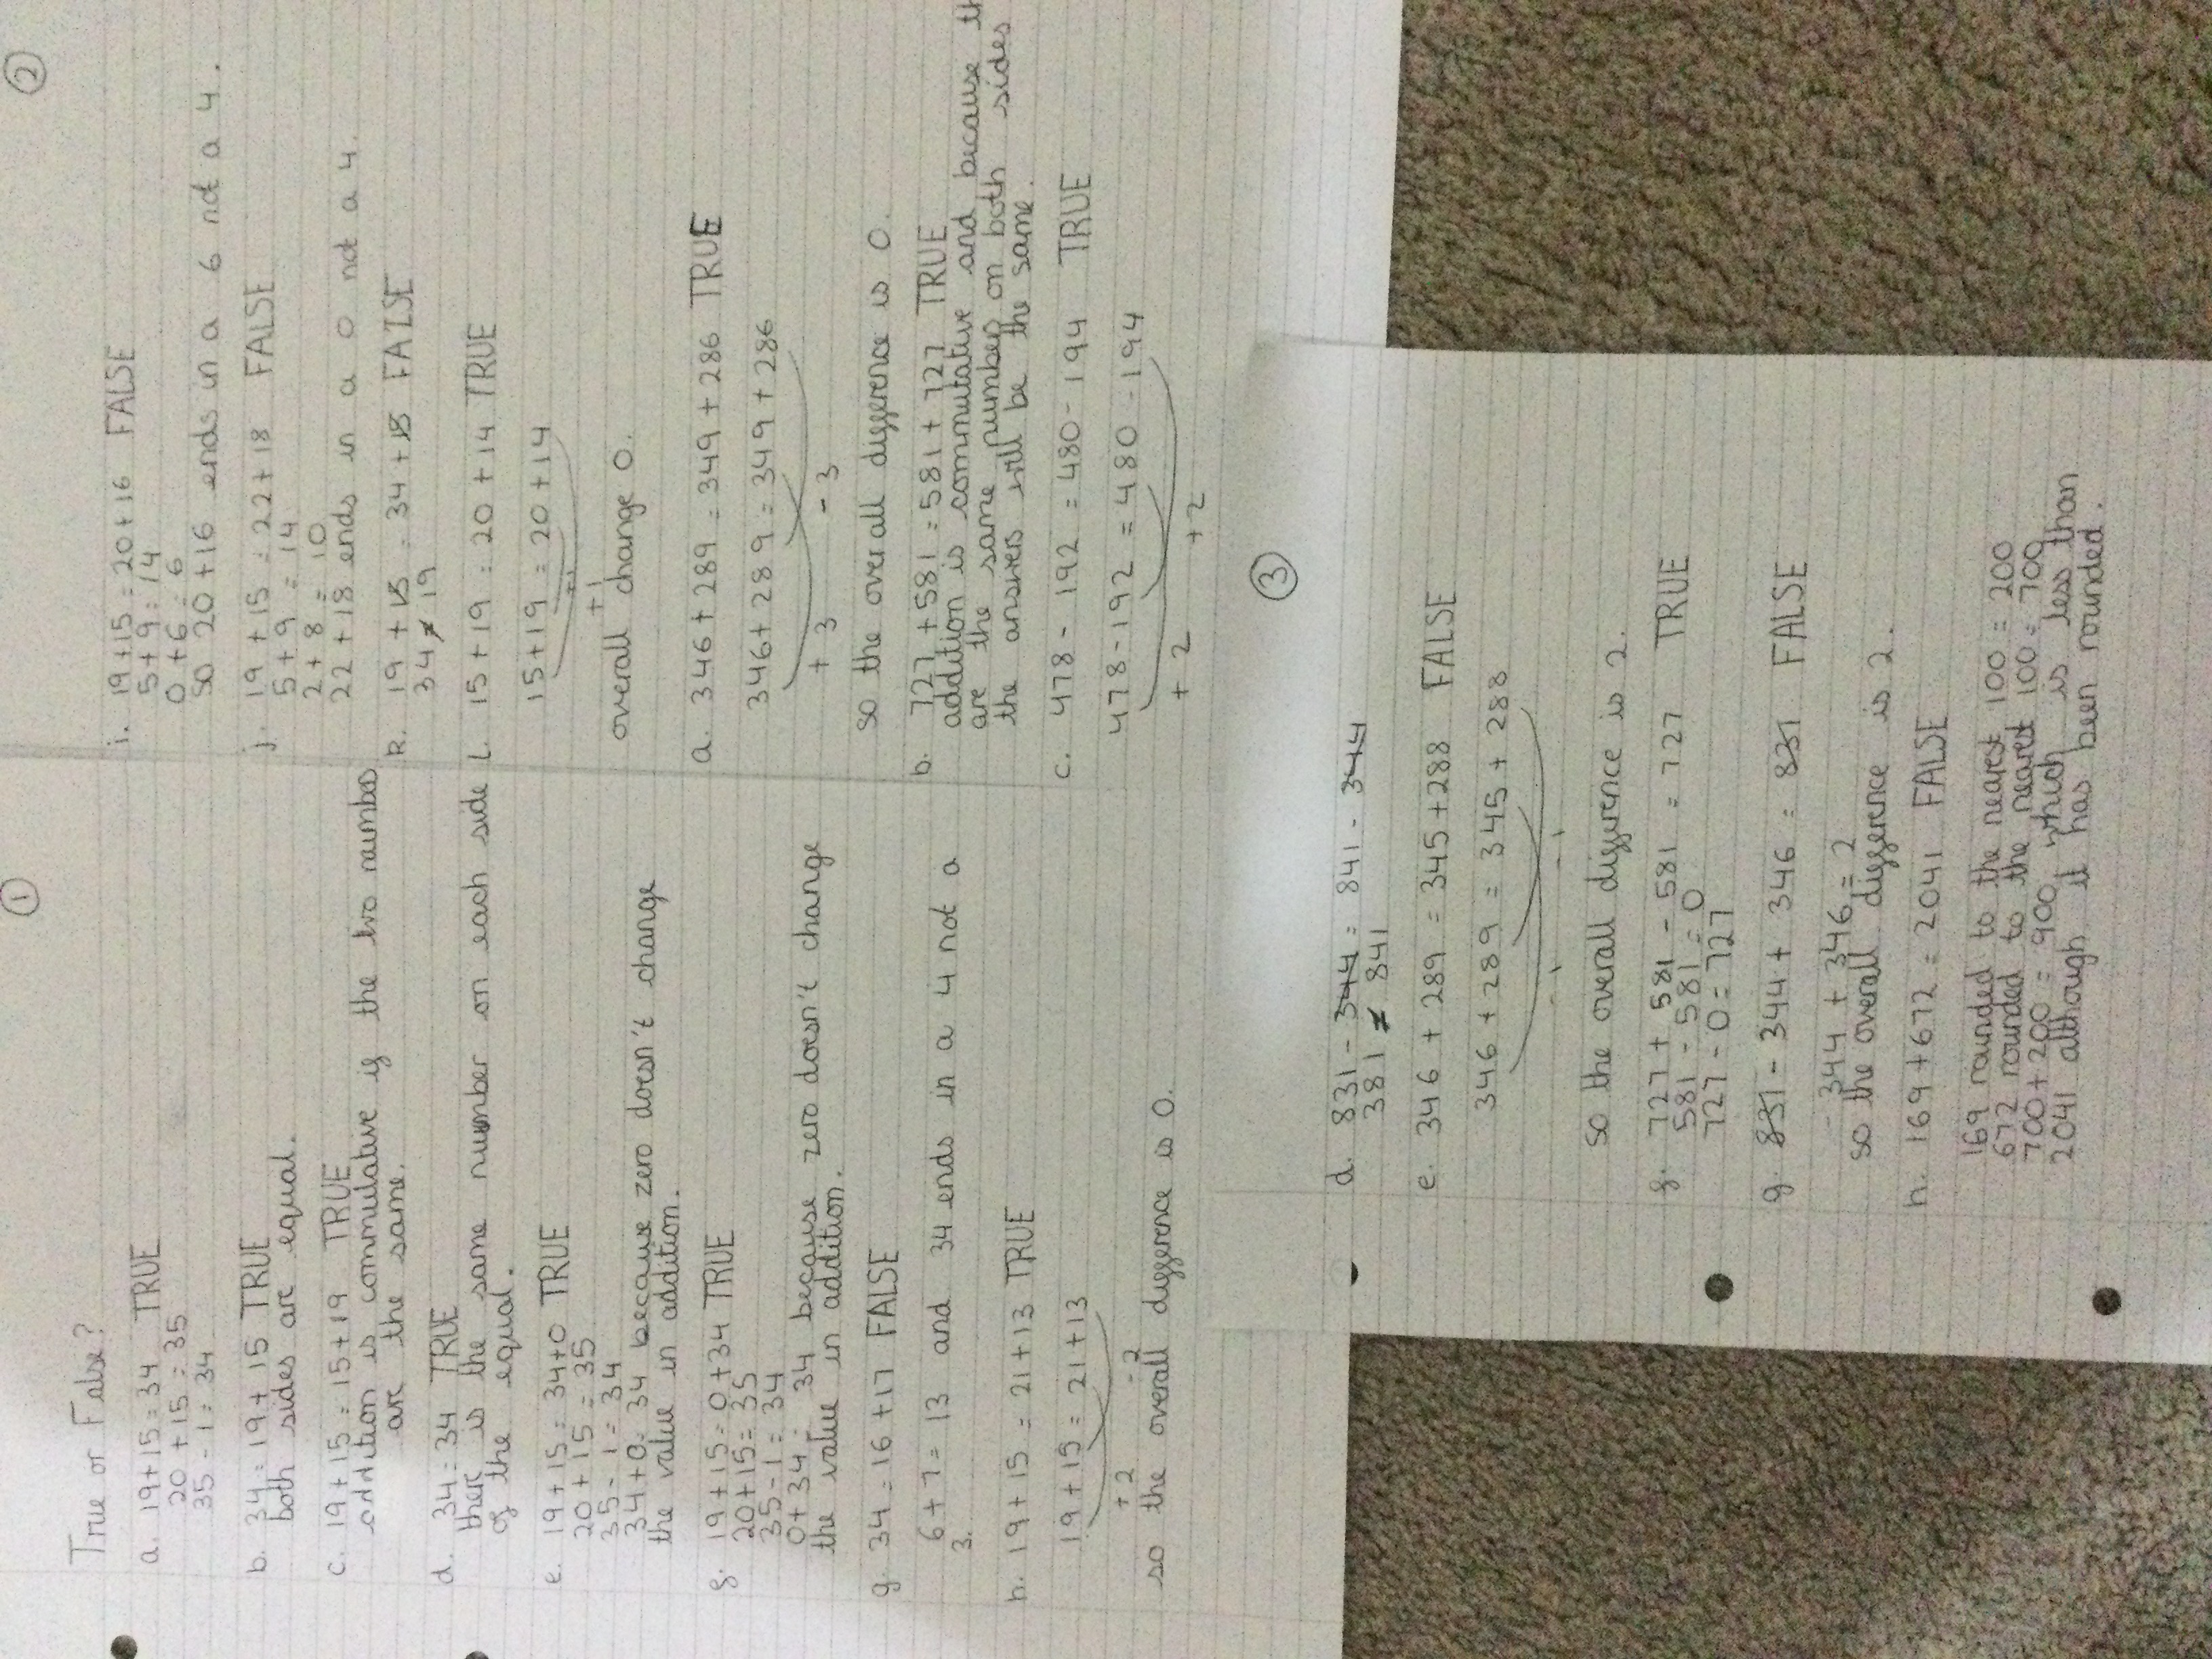 ①
True or False?
a. 19+15=34 TRUE
20+15=35
35-1=34
b. 34=19+15 TRUE
both sides are equal.
c. 19+15=15+19 TRUE
addition is commulative if the two numbers
are the same.
d. 34=34 TRUE
there is the same number on each side
of the equal.
e. 19+15=34+0 TRUE
20+15=35
35-1=34
34+0=34 because zero doesn't change
the value in addition.
f. 19+15=0+34 TRUE
20+15=35
35-1=34
0+34=34 because zero doesn't change
the value in addition.
g. 34=16+17 FALSE
6+7=13 and 34 ends in a 4 not a
3.
h. 19+15=21+13 TRUE
19+15=21+13
+2 -2
so the overall difference is 0.
②
i. 19+15=20+16 FALSE
5+9=14
0+6=6
so 20+16 ends in a 6 not a 4.
j. 19+15=22+18 FALSE
5+9=14
2+8=10
22+18 ends in a 0 not a 4.
k. 19+15=34+15 FALSE
34≠19
l. 15+19=20+14 TRUE
15+19=20+14
+1
overall change 0.
a. 346+289=349+286 TRUE
346+289=349+286
+3 -3
so the overall difference is 0.
b. 727+581=581+727 TRUE
addition is commutative and because
are the same number on both sides
the answers will be the same.
c. 478-192=480-194 TRUE
478-192=480-194
+2 +2
+2
③
d. 831-344=841-344
381≠841
e. 346+289=345+288 FALSE
346+289=345+288
-1 -1
so the overall difference is 2.
f. 727+581-581=727 TRUE
581-581=0
727-0=727
g. 831-344+346=831 FALSE
-344+346=2
so the overall difference is 2.
h. 169+672=2041 FALSE
169 rounded to the nearest 100=200
672 rounded to the nearest 100=700
700+200=900 which is less than
2041 although it has been rounded.